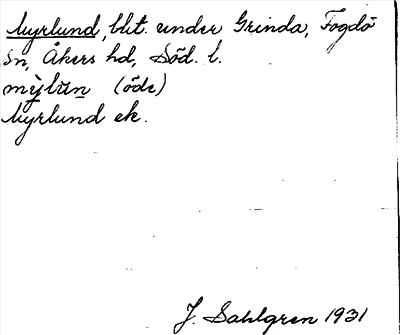 Myrlund, blt. under Grinda, Fogdö
sn, Åkers hd, Söd. l.
mỳlun (öde)
Myrlund ek.
J. Sahlgren 1931